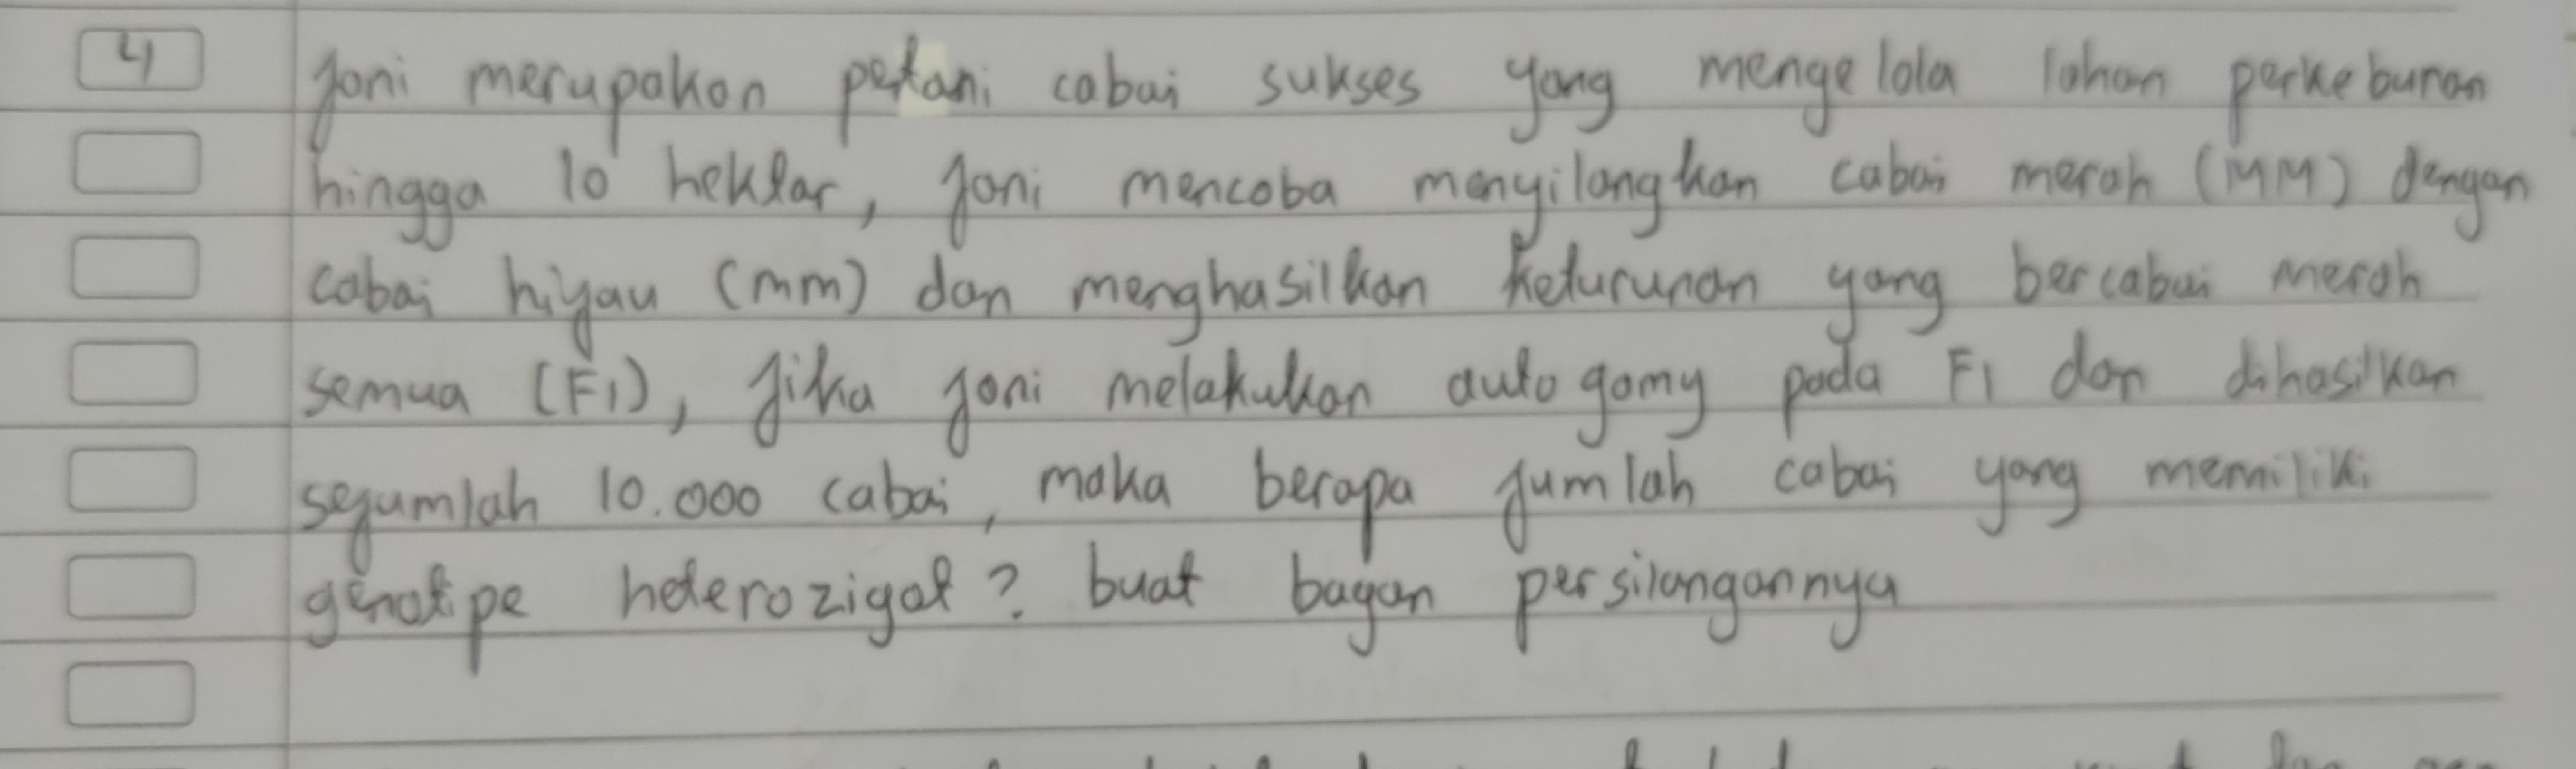 4 Joni merupakan petani cabai sukses yang mengelola lahan perkebunan
hingga 10 hektar, Joni mencoba menyilangkan cabai merah (MM) dengan
cabai hijau (mm) dan menghasilkan keturunan yang bercabai merah
semua (F1), Jika Joni melakukan autogamy pada F1 dan dihasilkan
sejumlah 10.000 cabai, maka berapa jumlah cabai yang memiliki
genotipe heterozigot? buat bagan persilangannya